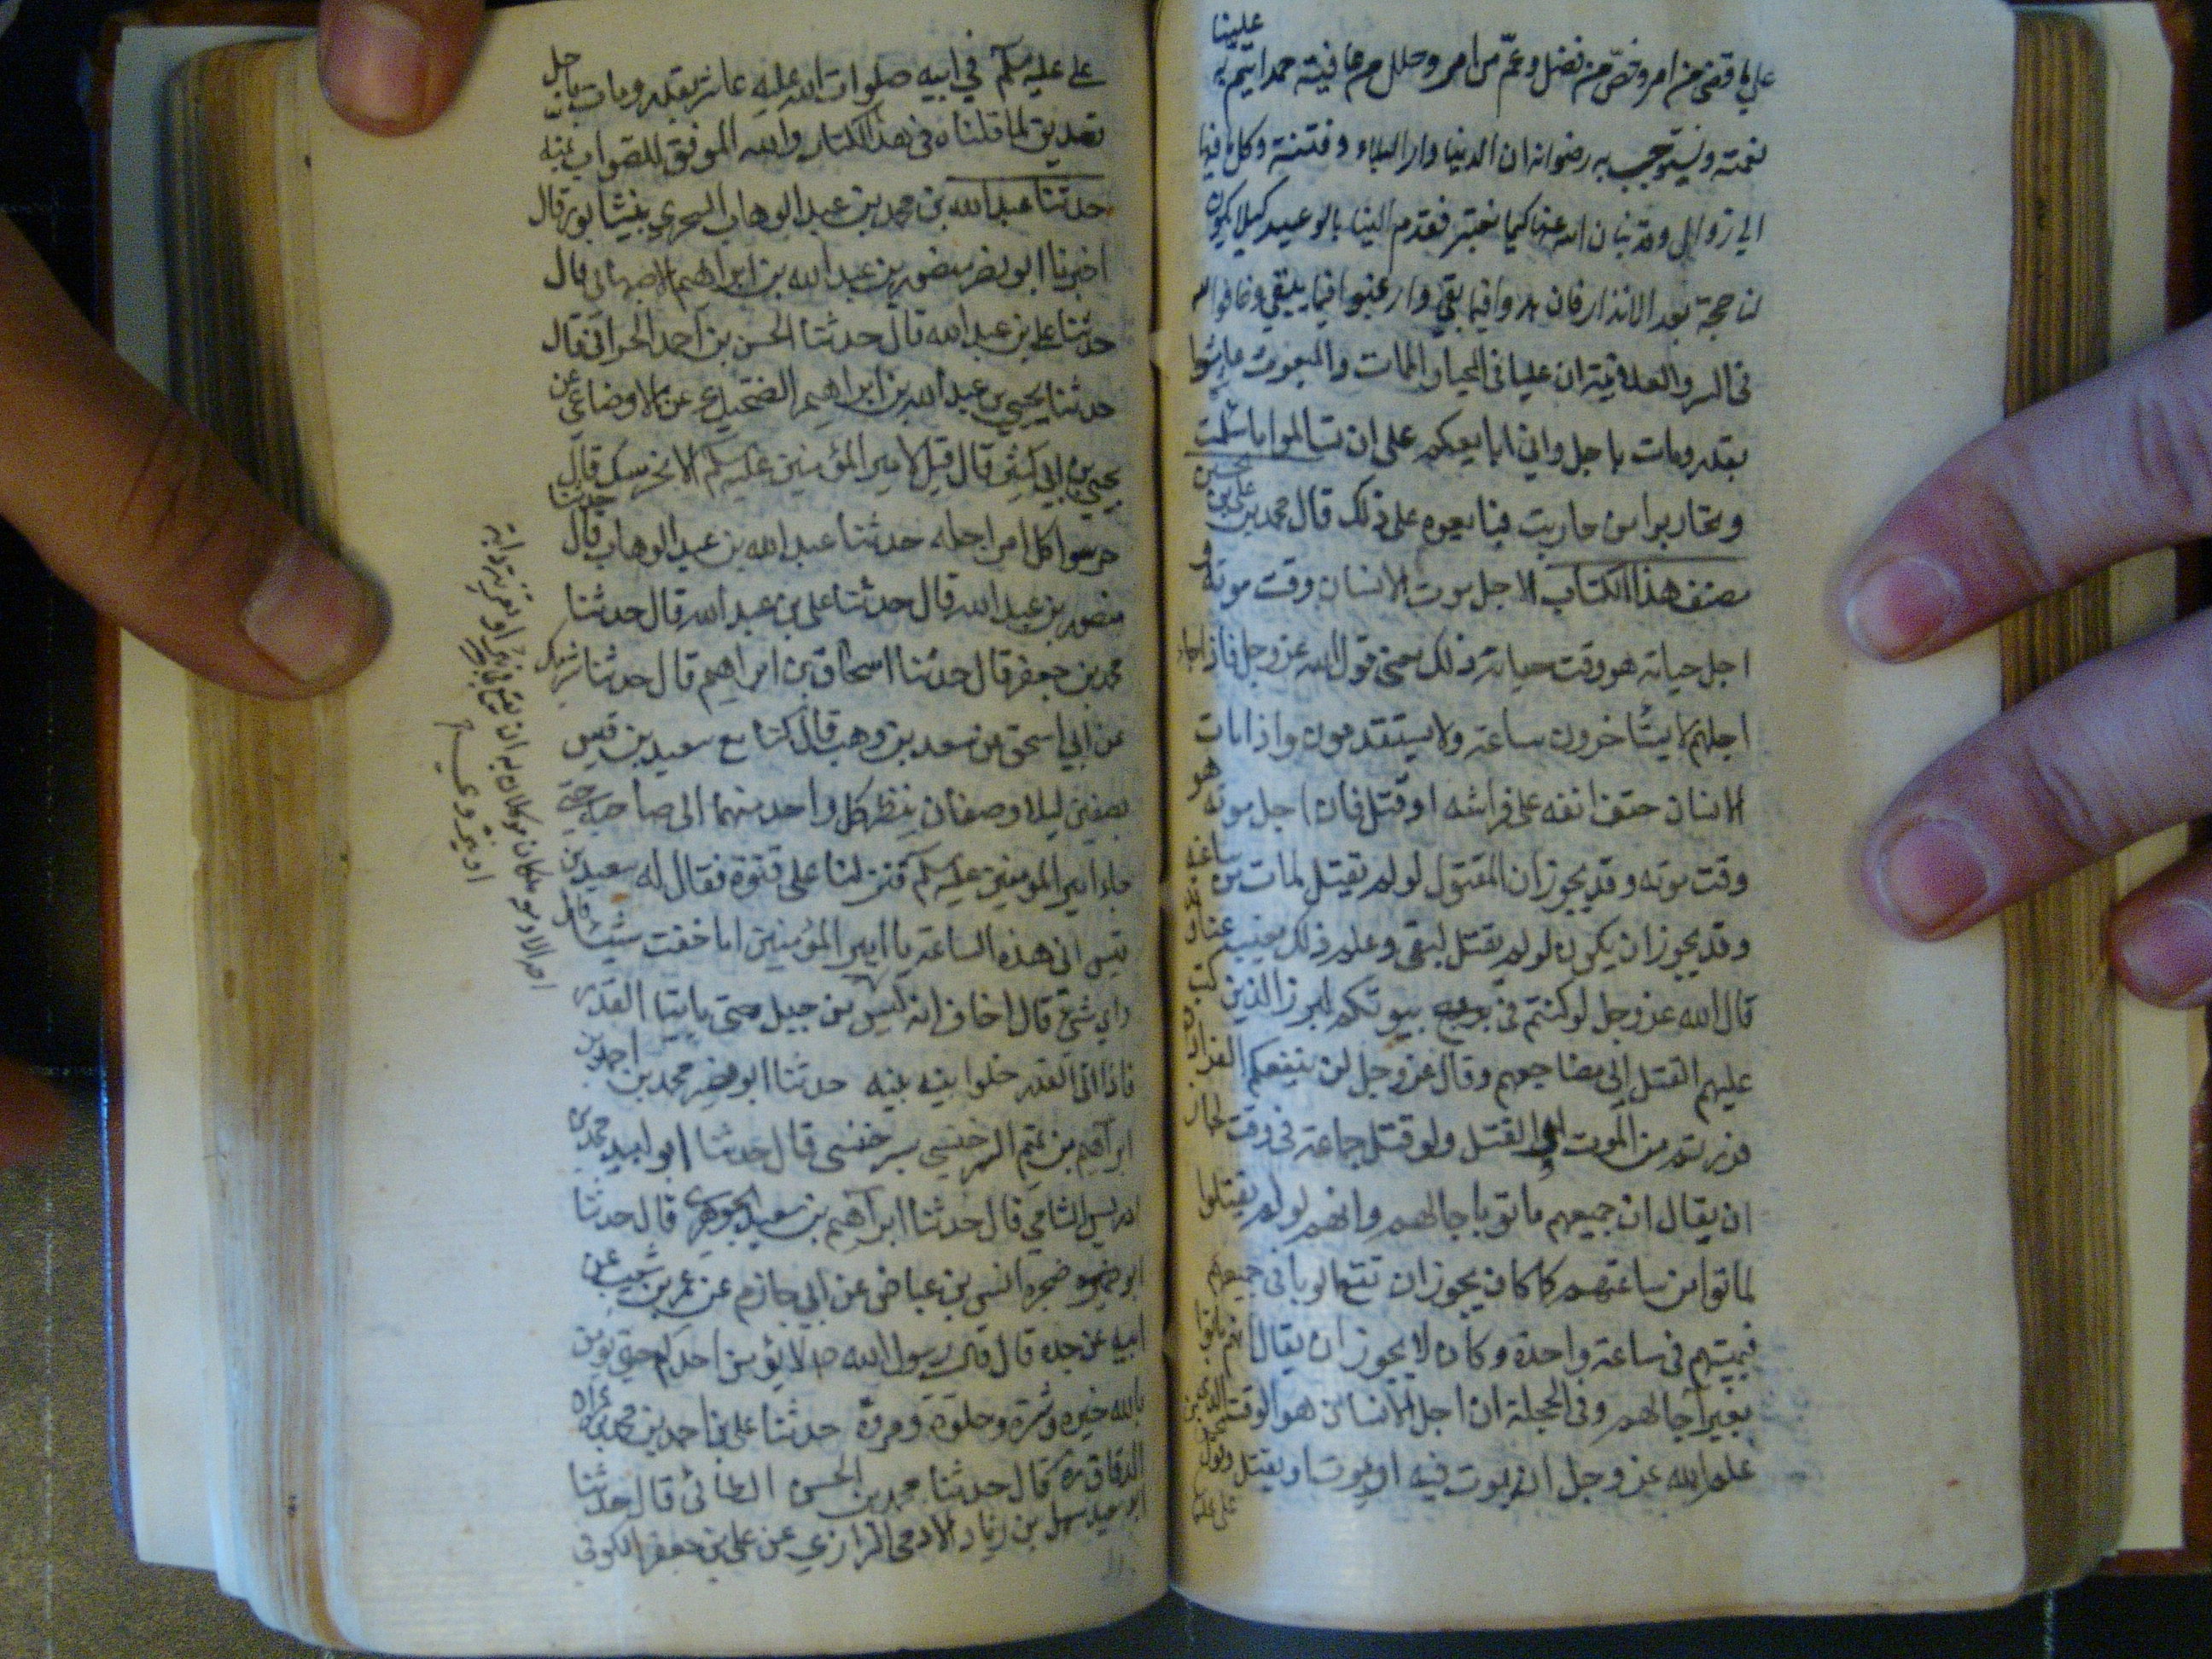 علينا
علي ما قضى من امر وخصّ من فضل وعمّ من امر وجلل من عافيته حمدا يتم به
نعمته ونستوجب به رضوانه ان الدنيا دار البلاء وفتنة وكل ما فيها
الى زوال وقد نبانا الله عنها كيما نعتبر فقدم الينا بالوعيد كيلا يكون
لنا حجة بعد الانذار فازهدوا فيما يفنى وارغبوا فيما يبقى وخافوا الله
في السر والعلانية ان عليا في المحيا والممات والمبعوث عاش
بقدر ومات باجل واني ابايعكم على ان تسالموا من سالمت
وتحاربوا من حاربت فبايعوه على ذلك قال محمد بن علي بن الحسين
مصنف هذا الكتاب الاجل موت الانسان وقت موته
اجل حياته هو وقت حياته وذلك معنى قول الله عز وجل فاذا جاء
اجلهم لا يستأخرون ساعة ولا يستقدمون واذا مات
الانسان حتف انفه على فراشه او قتل فان اجل موته هو
وقت موته وقد يجوز ان المقتول لو لم يقتل لمات من ساعته
وقد يجوز ان يكون لو لم يقتل لبقي وعلم ذلك مغيب عنا وقد
قال الله عز وجل لو كنتم في بيوتكم لبرز الذين كتب
عليهم القتل الى مضاجعهم وقال عز وجل لن ينفعكم الفرار ان
فررتم من الموت او القتل ولو قتل جماعة في وقت لجاز
ان يقال ان جميعهم ماتوا باجالهم وانهم لو لم يقتلوا
لماتوا من ساعتهم كما كان يجوز ان يقع الوباء في جميعهم
فيميتهم في ساعة واحدة وكان لا يجوز ان يقال انهم ماتوا
بغير آجالهم وفي الجملة ان اجل الانسان هو الوقت الذي
علم الله عز وجل انه يموت فيه او يقتل وقول
علي عليه سلم في ابيه صلوات الله عليه عاش بقدر ومات باجل
تصديق لما قلناه في هذا الكتاب والله الموفق للصواب بمنه
حدثنا عبدالله بن محمد بن عبد الوهاب السجزي بنيشابور قال
اخبرنا ابو نصر منصور بن عبد الله بن ابراهيم الاصبهاني قال
حدثنا علي بن عبد الله قال حدثنا الحسن بن احمد الحراني قال
حدثنا يحيي بن عبد الله بن الضحاك عن الاوزاعي عن
يحيي بن ابي كثير قال قيل لامير المؤمنين عليه سلم الا نحرسك قال
حرس كل امرء اجله حدثنا عبد الله بن عبد الوهاب قال حدثنا
منصور بن عبد الله قال حدثنا علي بن عبد الله قال حدثنا
محمد بن جعفر قال حدثنا اسحاق بن ابراهيم قال حدثنا شريك
عن ابي اسحق عن سعد بن وهب قال كنا مع سعيد بن قيس
بصفين ليلا وصفان ينظر كل واحد منهما الى صاحبه حتى
جاء امير المومنين عليه سلم فنزلنا على فقال له سعيد بن
قيس افي هذه الساعة يا امير المؤمنين اما خفت شيئا قال
واي شئ قال اخاف انه ليس من حتى ياتيا القدر
فاذا اتى القدر خلوا بينه بينه حدثنا ابو نصر محمد بن احمد بن
ابراهيم بن تميم السرخسي بسرخس قال حدثنا ابو لبيد محمد بن
ادريس الشامي قال حدثنا ابراهيم بن سعيد الجوهري قال حدثنا
ابو ضمرة انس بن عياض عن ابي حازم عن عمر بن شعيب عن
ابيه عن جده قال قال رسول الله ص لا يؤمن احدكم حتى يؤمن
بالله خيره وشره وحلوه ومره حدثنا علي بن احمد بن محمد بن عمران
الدقاق ره قال حدثنا محمد بن الحسن الطائي قال حدثنا
ابو سعيد سهل بن زياد الادمي الرازي عن علي بن جعفر الكوفي